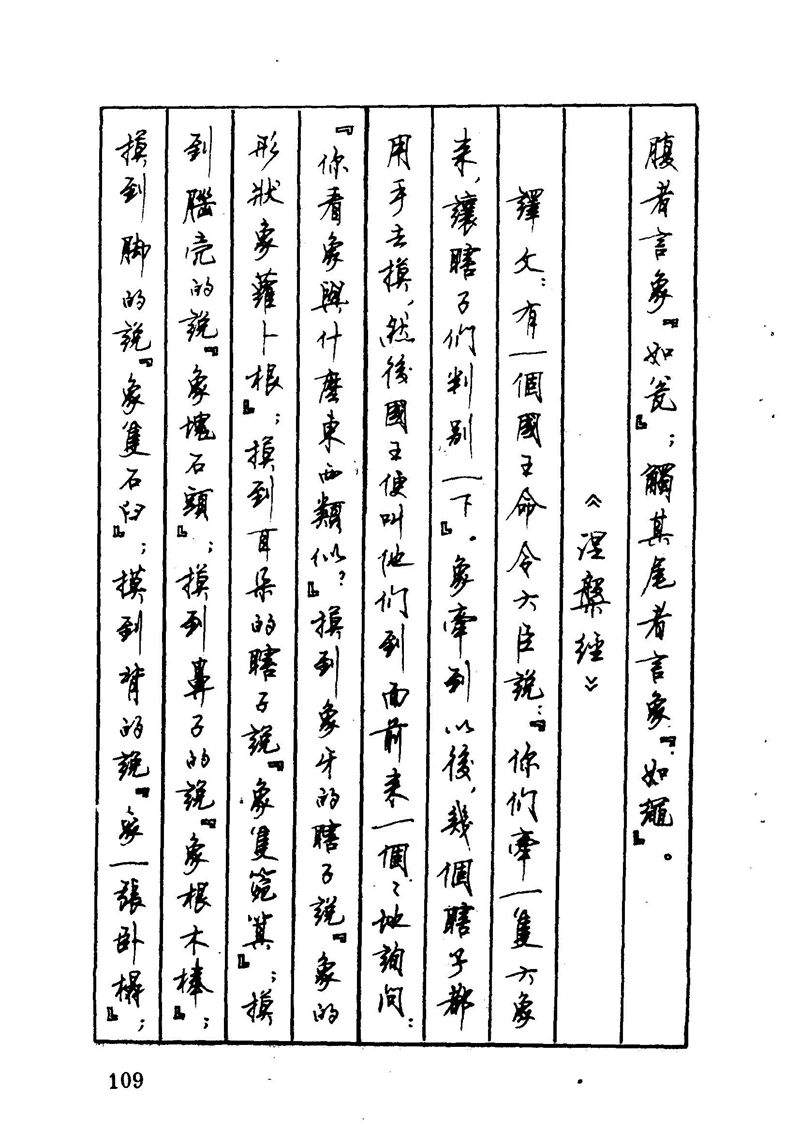 腹者言象『如瓮』；觸其尾者言象『如䋲』。
《涅槃經》
譯文：有一個國王命令大臣說：『你們牽一隻大象
来，讓瞎子們判别一下』。象牽到以後，幾個瞎子都
用手去摸，然後國王便叫他們到面前来一個〻地詢问：
『你看象與什麼東西類似？』摸到象牙的瞎子說『象的
形狀象蘿卜根』；摸到耳朵的瞎子說『象隻筢箕』；摸
到腦壳的說『象塊石頭』；摸到鼻子的說『象根木棒』；
摸到脚的說『象隻石臼』；摸到背的說『象一張卧榻』；
109